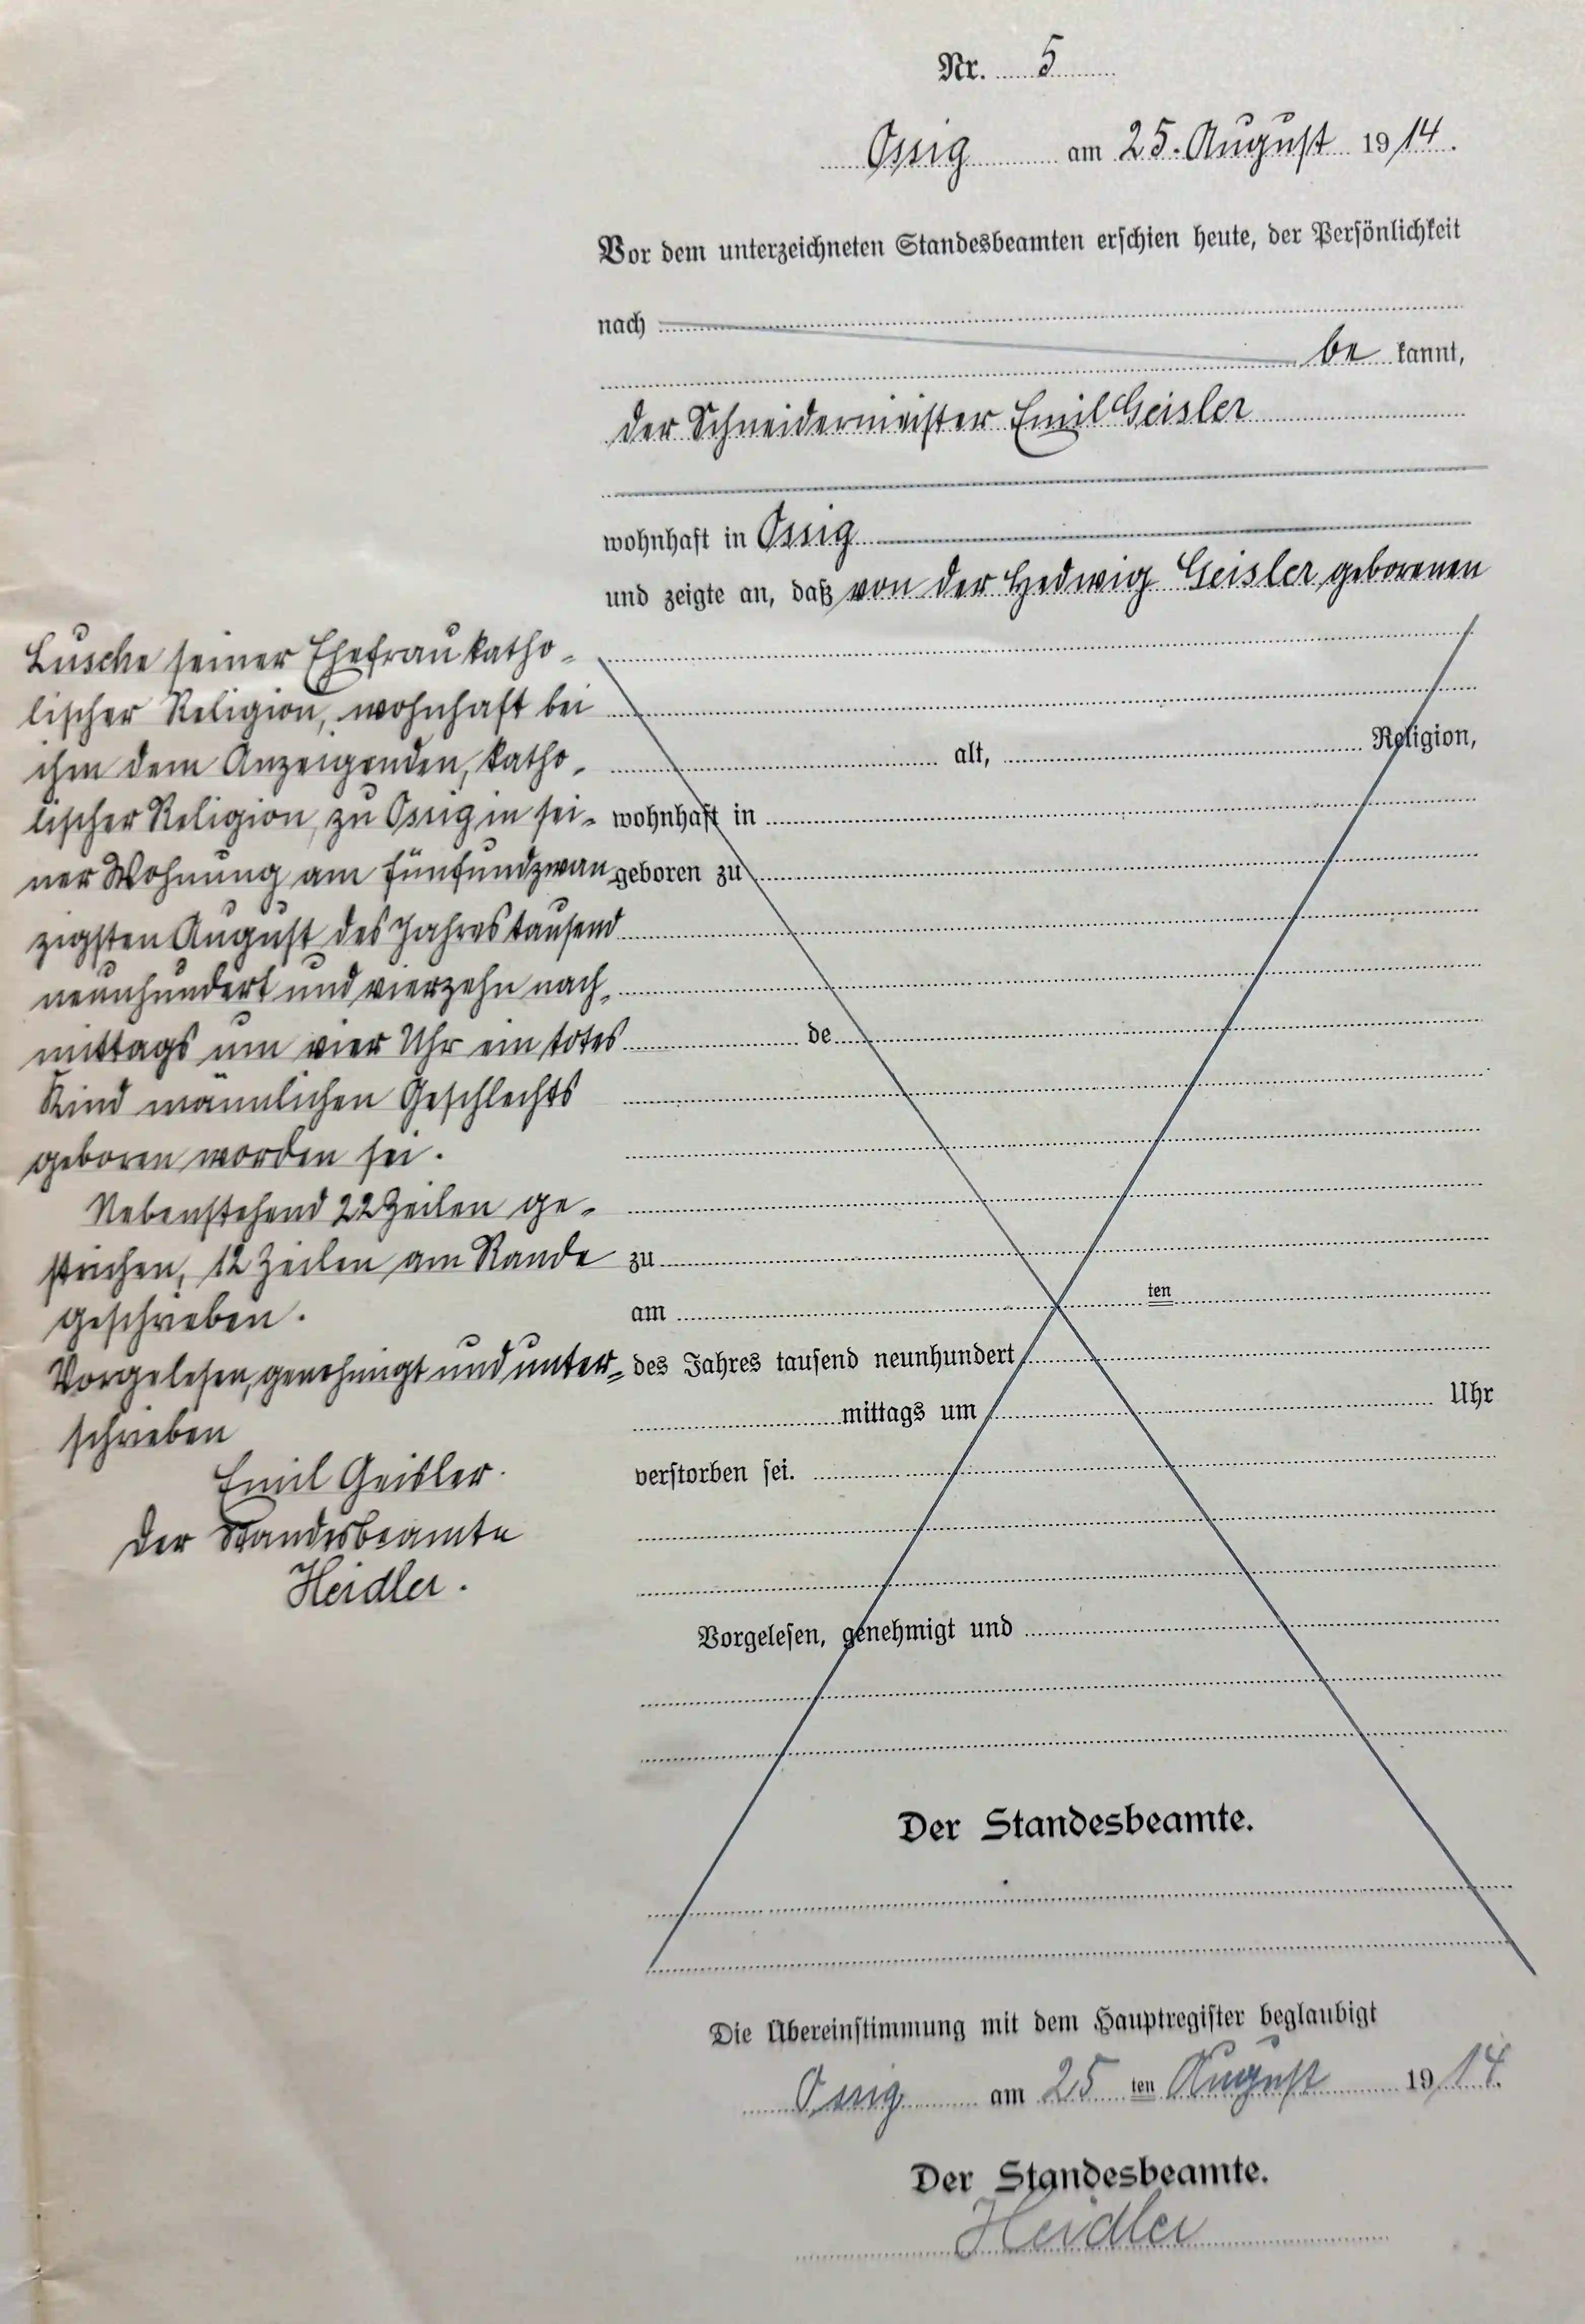 Nr. 5
Ossig am 25. August 1914.
Vor dem unterzeichneten Standesbeamten erschien heute, der Persönlichkeit
nach
be kannt,
der Schneidermeister Emil Geisler
wohnhaft in Ossig
und zeigte an, daß von der Hedwig Geisler geborenen
Lusche seiner Ehefrau katho-
lischer Religion, wohnhaft bei
ihm dem Anzeigenden, katho-
lischer Religion, zu Ossig in sei-
ner Wohnung am fünfundzwan
zigsten August des Jahres tausend
neunhundert und vierzehn nach-
mittags um vier Uhr ein totes
Kind männlichen Geschlechts
geboren worden sei.
Nebenstehend 22 Zeilen ge-
strichen, 12 Zeilen am Rande
geschrieben.
Vorgelesen, genehmigt und unter-
schrieben
Emil Geisler.
Der Standesbeamte
Heidler.
alt, Religion,
wohnhaft in
geboren zu
de
zu
am ten
des Jahres tausend neunhundert
mittags um Uhr
verstorben sei.
Vorgelesen, genehmigt und
Der Standesbeamte.
Die Übereinstimmung mit dem Hauptregister beglaubigt
Ossig am 25 ten August 1914.
Der Standesbeamte.
Heidler